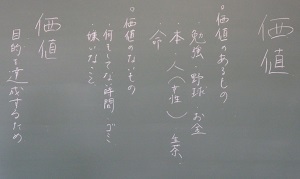 価値
○価値のあるもの
・勉強・野球・お金
・本・人(女性)
・命
○価値のないもの
・何もしてない時間・ゴミ
・嫌いなこと
価値
目的を達成するため